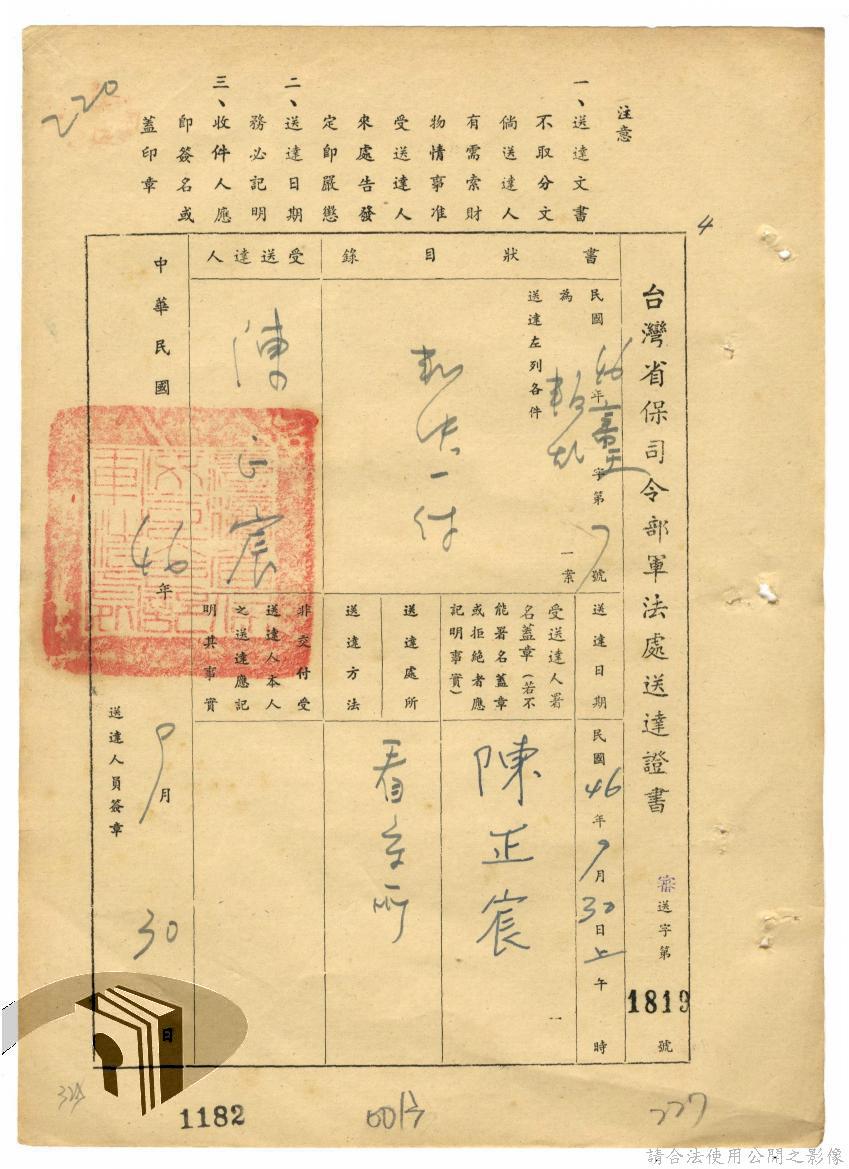 注意
一、送達文書
不取分文
倘送達人
有需索財
物情事准
受送達人
來處告發
定即嚴懲
二、送達日期
務必記明
三、收件人應
即簽名或
蓋印章
220
4
台灣省保司令部軍法處送達證書 審送字第1819號
書狀目錄
民國46年審字第 號
為 一案
送達左列各件
判決一件
受送達人
陳正宸
送達日期
民國46年9月30日上午 時
受送達人署
名蓋章(若不
能署名蓋章
或拒絕者應
記明事實)
陳正宸
送達處所
送達方法
看守所
非交付受
送達人本人
之送達應記
明其事實
中華民國46年9月30日
送達人員簽章
324
1182
227
請合法使用公開之影像